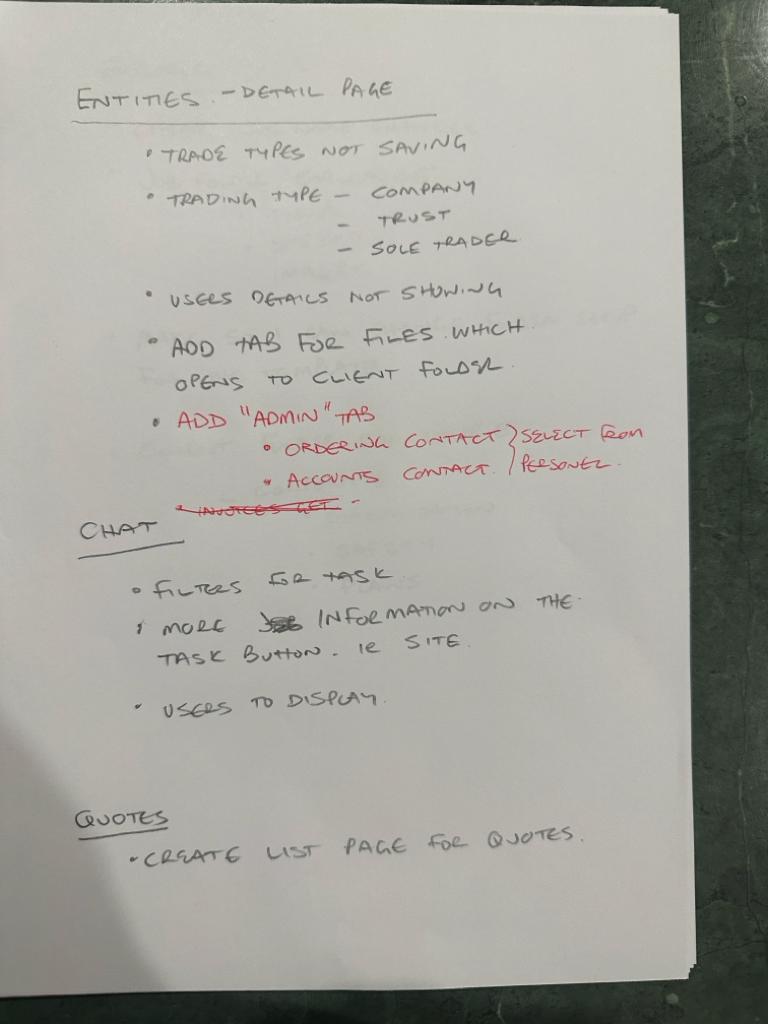 ENTITIES - DETAIL PAGE
• TRADE TYPES NOT SAVING
• TRADING TYPE - COMPANY
- TRUST
- SOLE TRADER
• USERS DETAILS NOT SHOWING
• ADD TAB FOR FILES WHICH
OPENS TO CLIENT FOLDER.
• ADD "ADMIN" TAB
• ORDERING CONTACT } SELECT FROM
• ACCOUNTS CONTACT. } PERSONEL.
• INVOICES GET -
CHAT
• FILTERS FOR TASK
• MORE INFORMATION ON THE
TASK BUTTON. IE SITE.
• USERS TO DISPLAY.
QUOTES
• CREATE LIST PAGE FOR QUOTES.